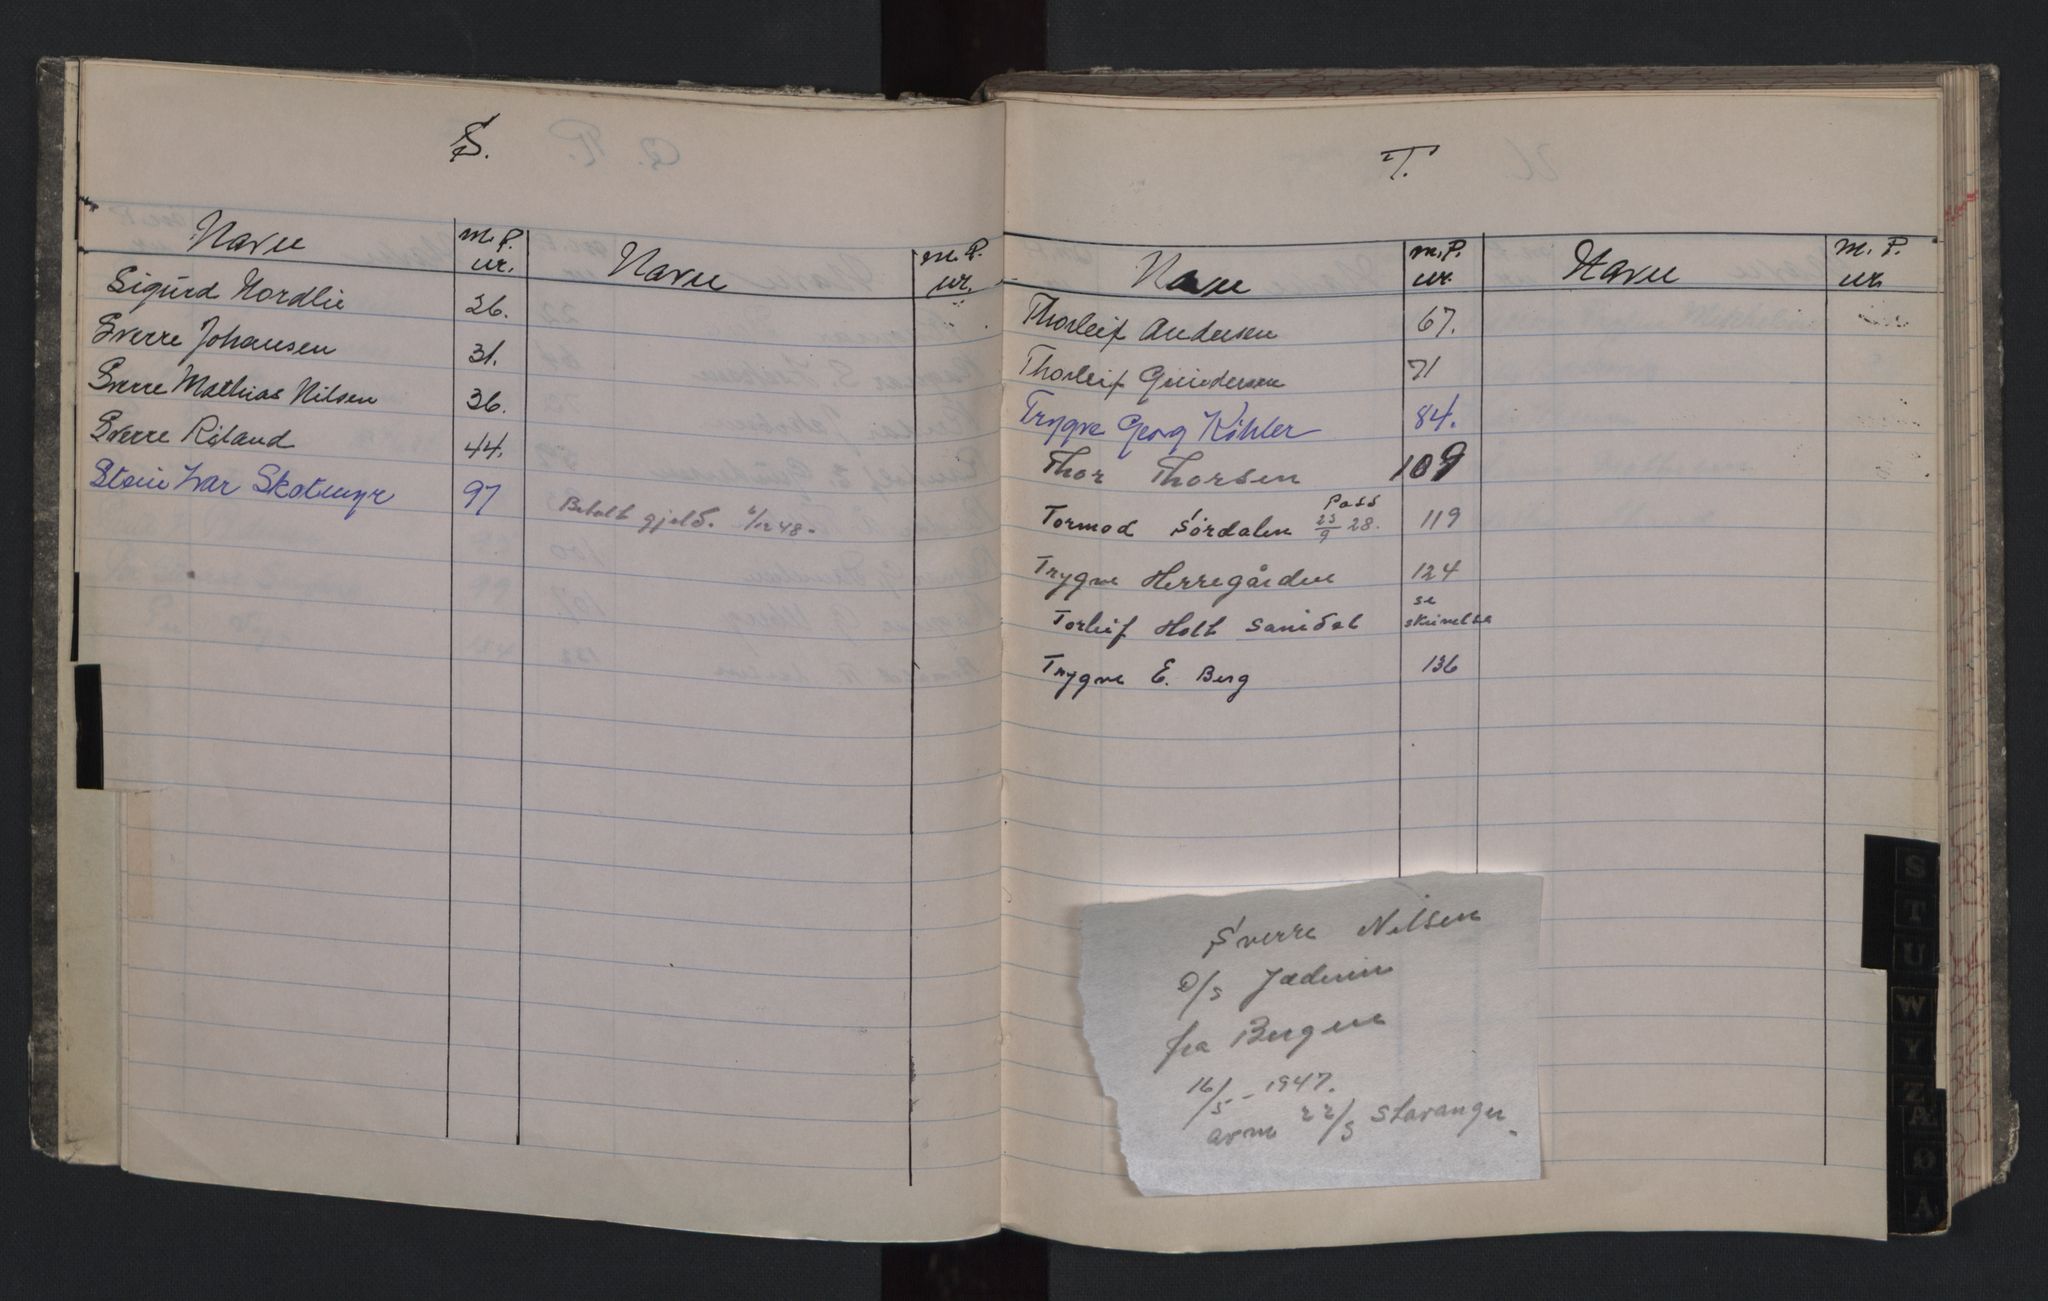 S.
Navn m.P. nr. Navn m.P. nr.
Sigurd Nordlie 26.
Sverre Johansen 31.
Sverre Mathias Nilsen 36.
Sverre Riland 44.
Stein Ivar Skotmyr 97
Betalt gjeld. 6/12 48.
T.
Navn m.P. nr. Navn m.P. nr.
Thorleif Andersen 67.
Thorleif Gundersen 71
Trygve Georg Köhler 84.
Thor Thorsen 109
Tormod Sørdalen Pass 23/9 28. 119
Trygve Herregården 124
Torleif Holt Sanidal se skrivelse
Trygve E. Berg 136
Sverre Nilsen
D/s Jæderen
fra Bergen
16/5 - 1947.
avm 22/5 Stavanger.
S
T
U
W
Y
Z Æ
Ø
Å